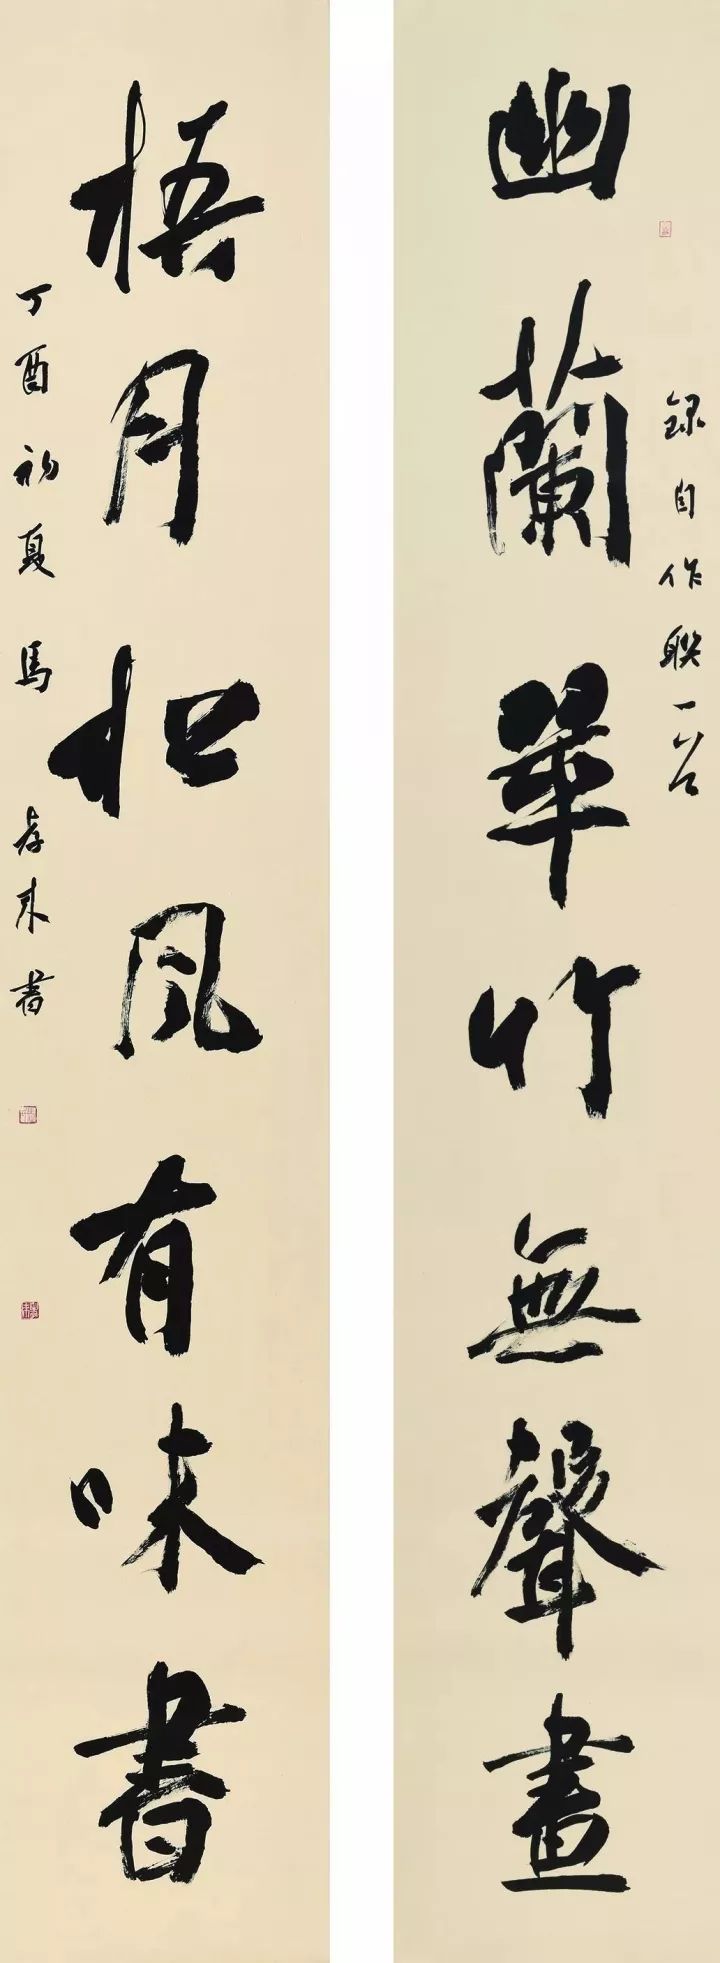 録自作联一
幽蘭翠竹無聲畫
梧月松風有味書
丁酉初夏馬孝来書